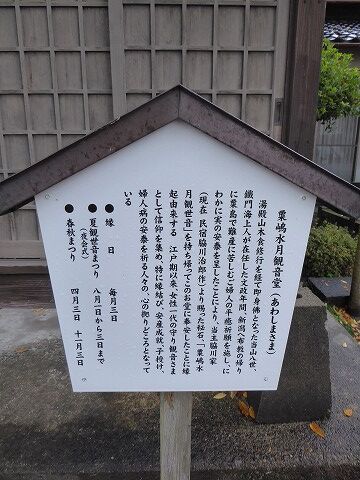 粟嶋水月観音堂(あわしまさま)
湯殿山木食修行を経て即身佛となった当山八世、
鐵門海上人が在任した文政年間、新潟へ布教の帰り
に粟島で難産に苦しむご婦人の平癒祈願を施し、に
わかに実の安泰を呈したことにより、当主脇川家
(現在 民宿脇川治郎作)より賜った秘石、「粟嶋水
月観世音」を持ち帰ってこのお堂に奉安したことに縁
起由来する 江戸期以来、女性一代の守り観音さま
として信仰を集め、特に縁結び、安産成就、子授け、
婦人病の安泰を祈る人々の心の拠りどころとなって
いる
●縁日 毎月三日
●夏観世音まつり 八月一日から三日まで
(夜会式)
●春秋まつり 四月三日 十一月三日